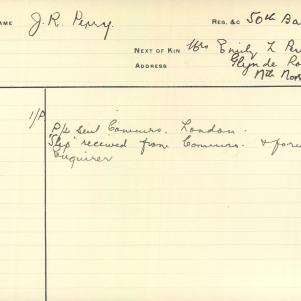 NAME J. R. Perry. REG. &C 50th Ba
NEXT OF KIN Mrs Emily L Per
ADDRESS Glynde Ro
Nth Nor
1/P. P/c sent Commrs. London.
"Slip" received from Commrs. & forw
Enquirer